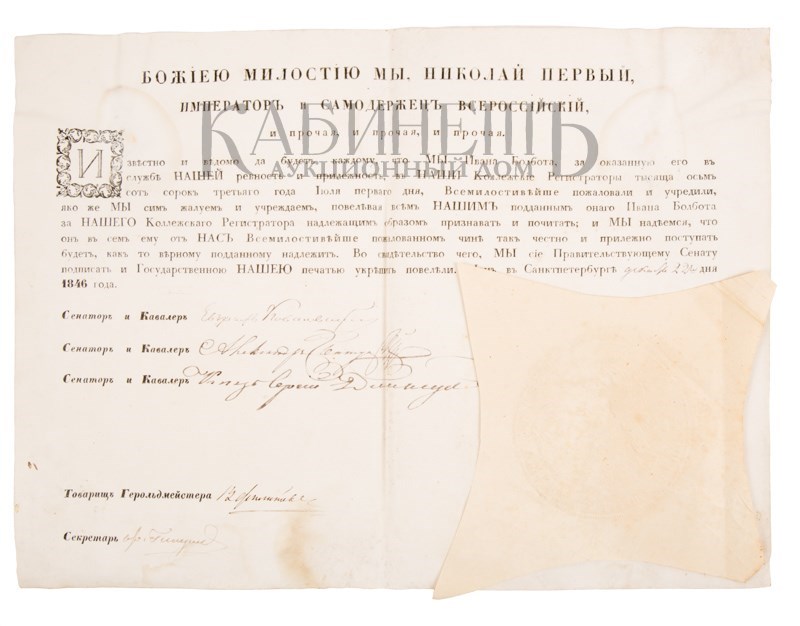 БОЖІЕЮ МИЛОСТІЮ МЫ, НИКОЛАЙ ПЕРВЫЙ,
ИМПЕРАТОРЪ и САМОДЕРЖЕЦЪ ВСЕРОССІЙСКІЙ,
и прочая, и прочая, и прочая.
КАБИНЕТЪ
АУКЦИОННЫЙ ДОМ
Извѣстно и вѣдомо да будетъ каждому, что МЫ Ивана Болбота, за оказанную его въ
службѣ НАШЕЙ ревность и прилежность, въ НАШИ Коллежскіе Регистраторы тысяща осьмъ
сотъ сорокъ третьяго года Іюля перваго дня, Всемилостивѣйше пожаловали и учредили,
яко же МЫ симъ жалуемъ и учреждаемъ, повелѣвая всѣмъ НАШИМЪ подданнымъ онаго Ивана Болбота
за НАШЕГО Коллежскаго Регистратора надлежащимъ образомъ признавать и почитать; и МЫ надѣемся, что
онъ въ семъ ему отъ НАСЪ Всемилостивѣйше пожалованномъ чинѣ такъ честно и прилежно поступать
будетъ, какъ то вѣрному подданному надлежитъ. Во свидѣтельство чего, МЫ сіе Правительствующему Сенату
подписать и Государственною НАШЕЮ печатью укрѣпить повелѣли. въ Санктпетербургѣ декабря 22 дня
1846 года.
Сенаторъ и Кавалеръ
Сенаторъ и Кавалеръ Александръ
Сенаторъ и Кавалеръ Князь Сергій
Товарищъ Герольдмейстера
Секретарь